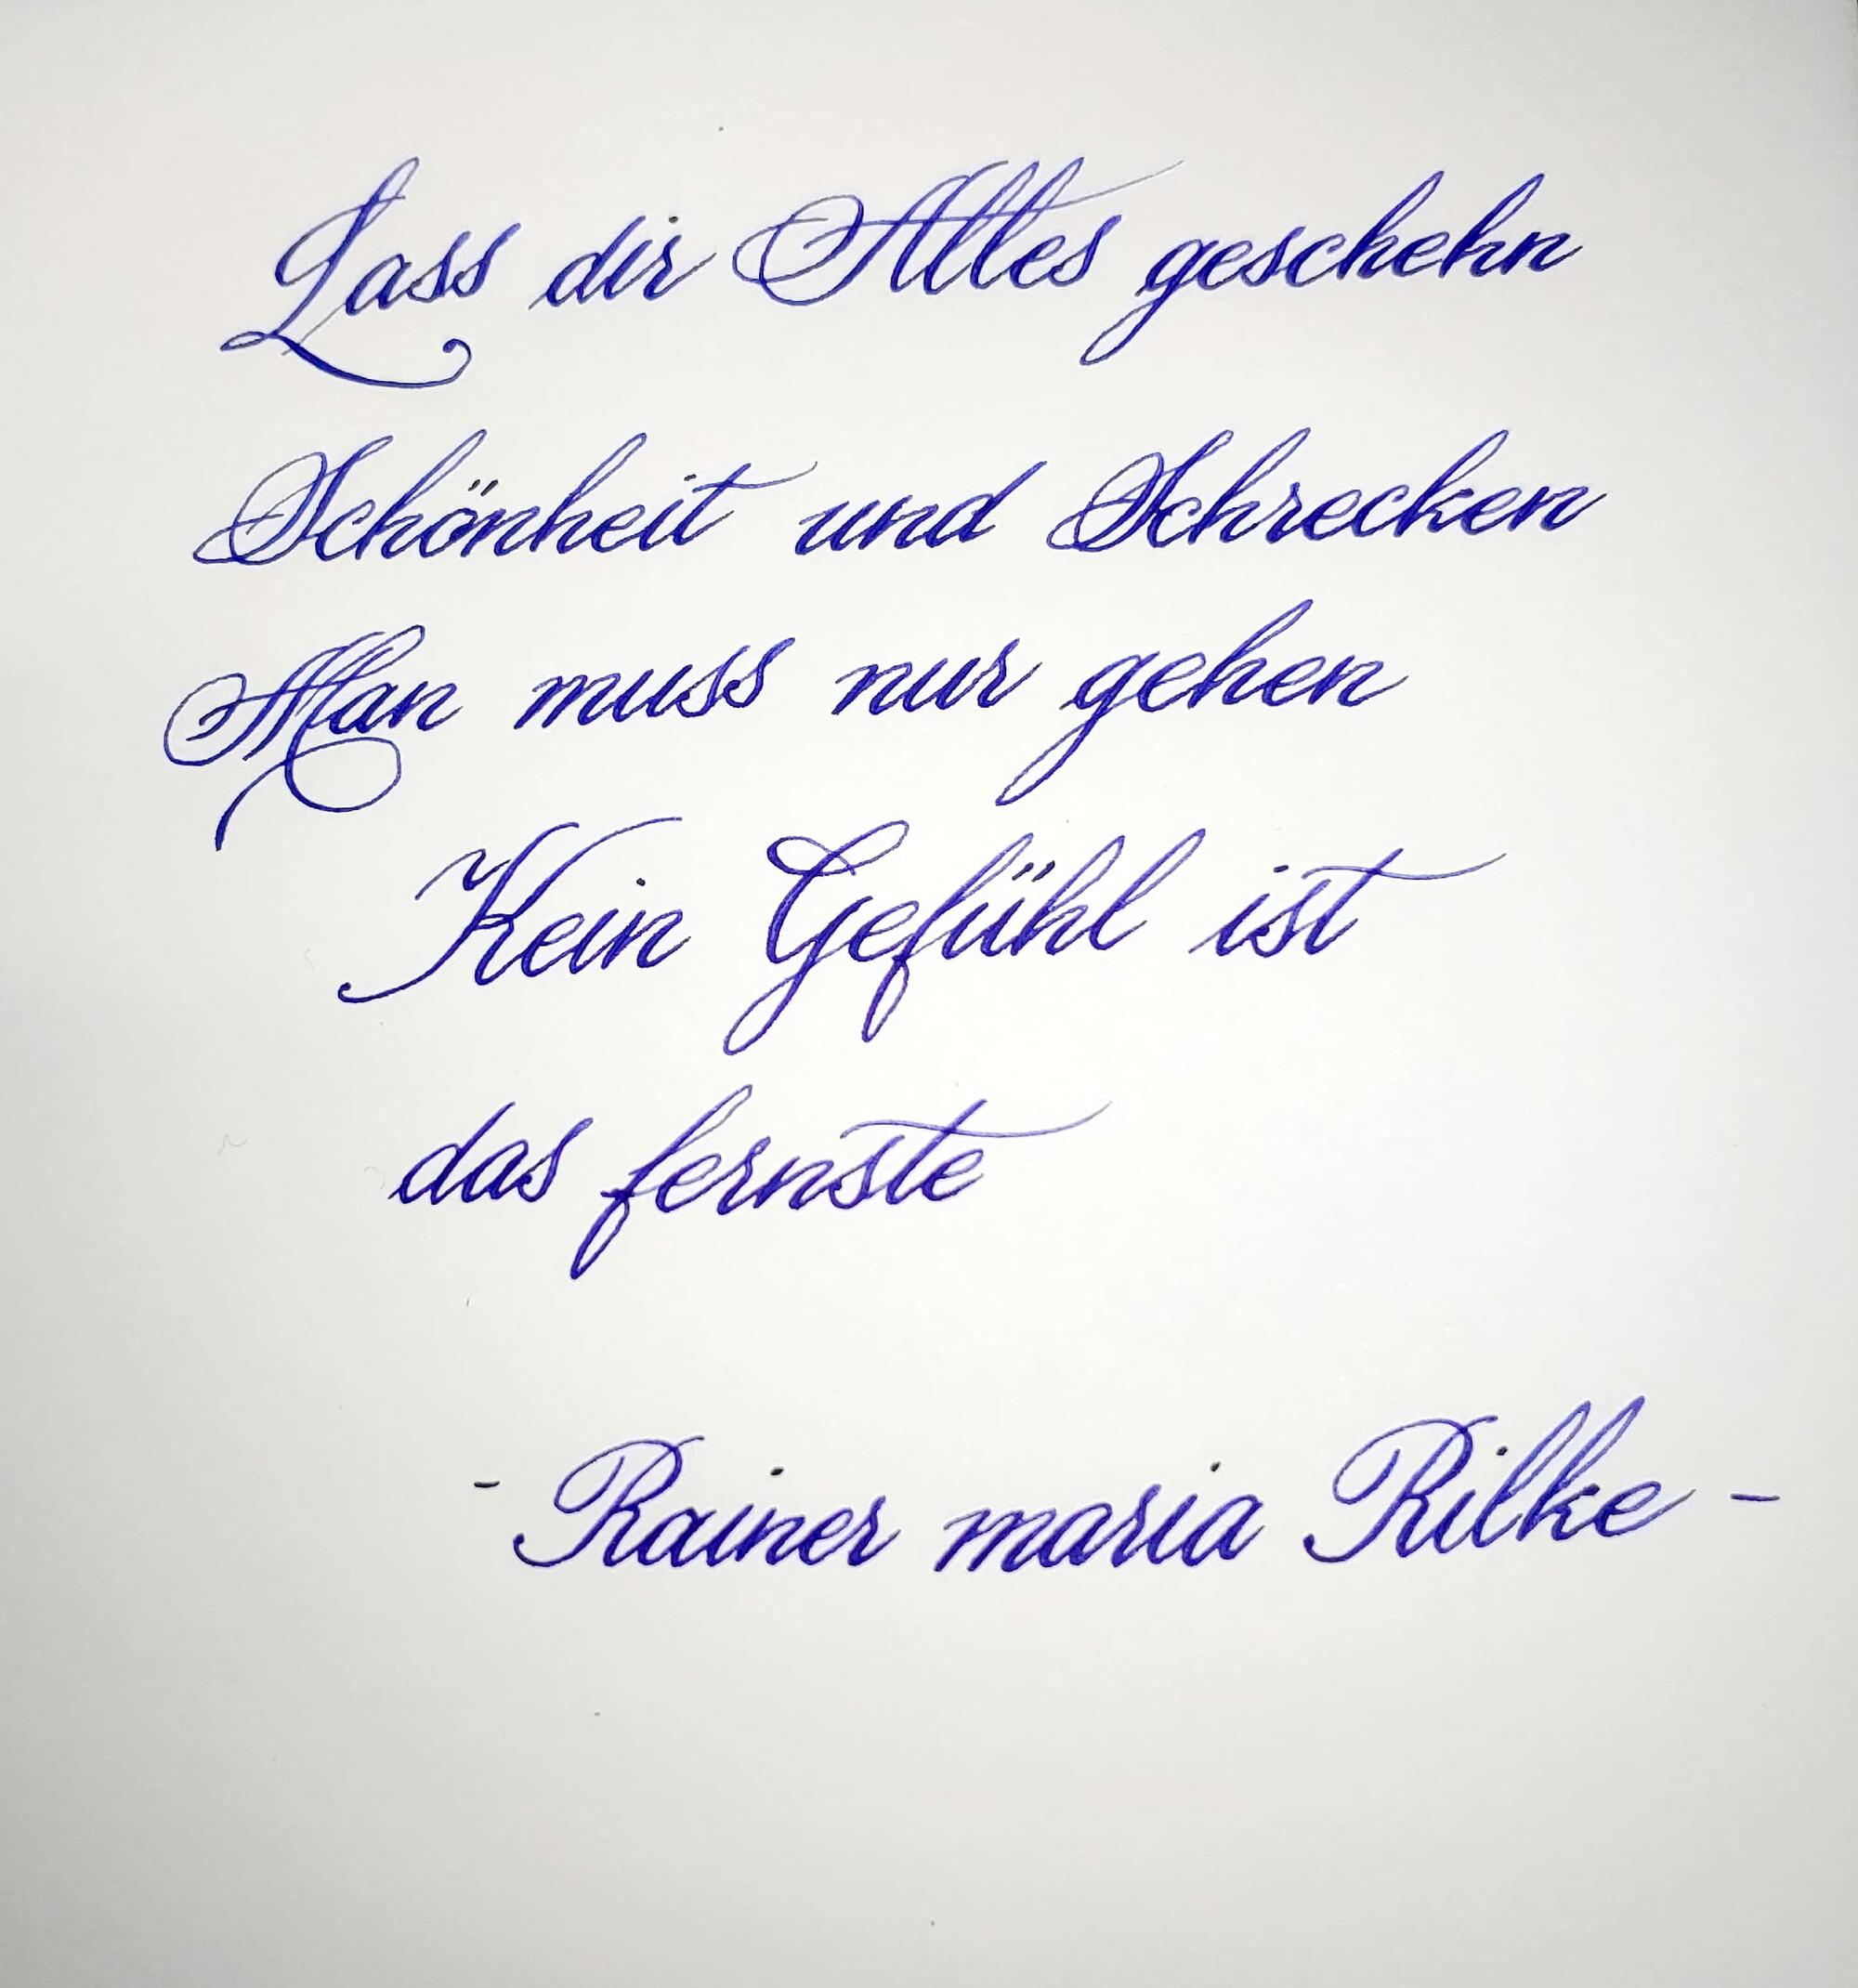 Lass dir Alles geschehn
Schönheit und Schrecken
Man muss nur gehen
Kein Gefühl ist
das fernste
- Rainer maria Rilke -